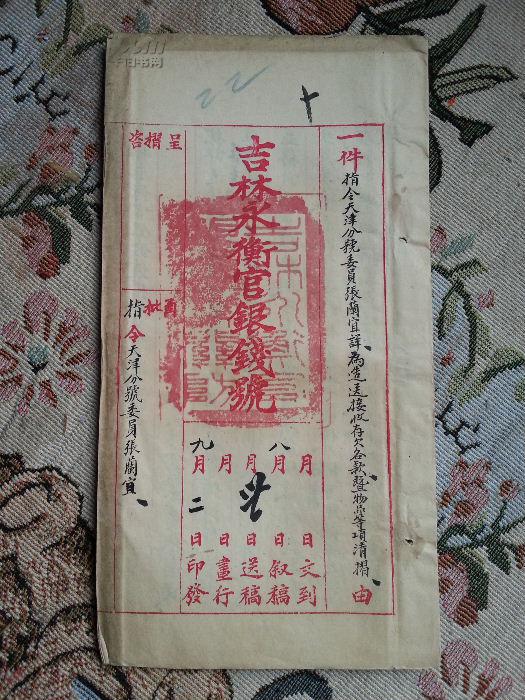 十
一件 指令天津分號委員張蘭宜詳為造送接收存欠各款暨物品等項清摺 由
吉林永衡官銀錢號
月 日文到
八月 日叙稿
月 日送稿
月 日畫行
九月二日印發
呈摺咨
批
指令天津分號委員張蘭宜